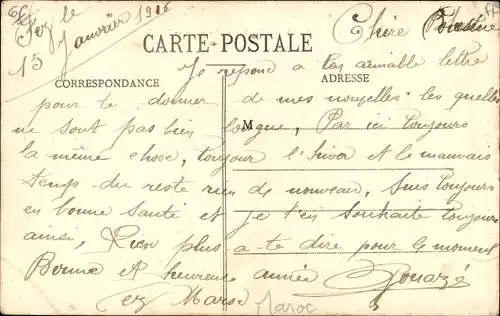 Fez le
15 Janvier 1916
Chère
CARTE-POSTALE
Je repond a ton aimable lettre
CORRESPONDANCE
ADRESSE
pour te donner de mes nouvelles les quelles
M
ne sont pas bien longue, Par ici toujours
la même chose, toujour l'hiver et le mauvais
temps du reste rien de nouveau, Suis toujours
en bonne santé et je t'en souhaite toujours
ainsi, Rien plus a te dire pour le moment
Bonne et heureuse année
Fez Maroc
Maroc